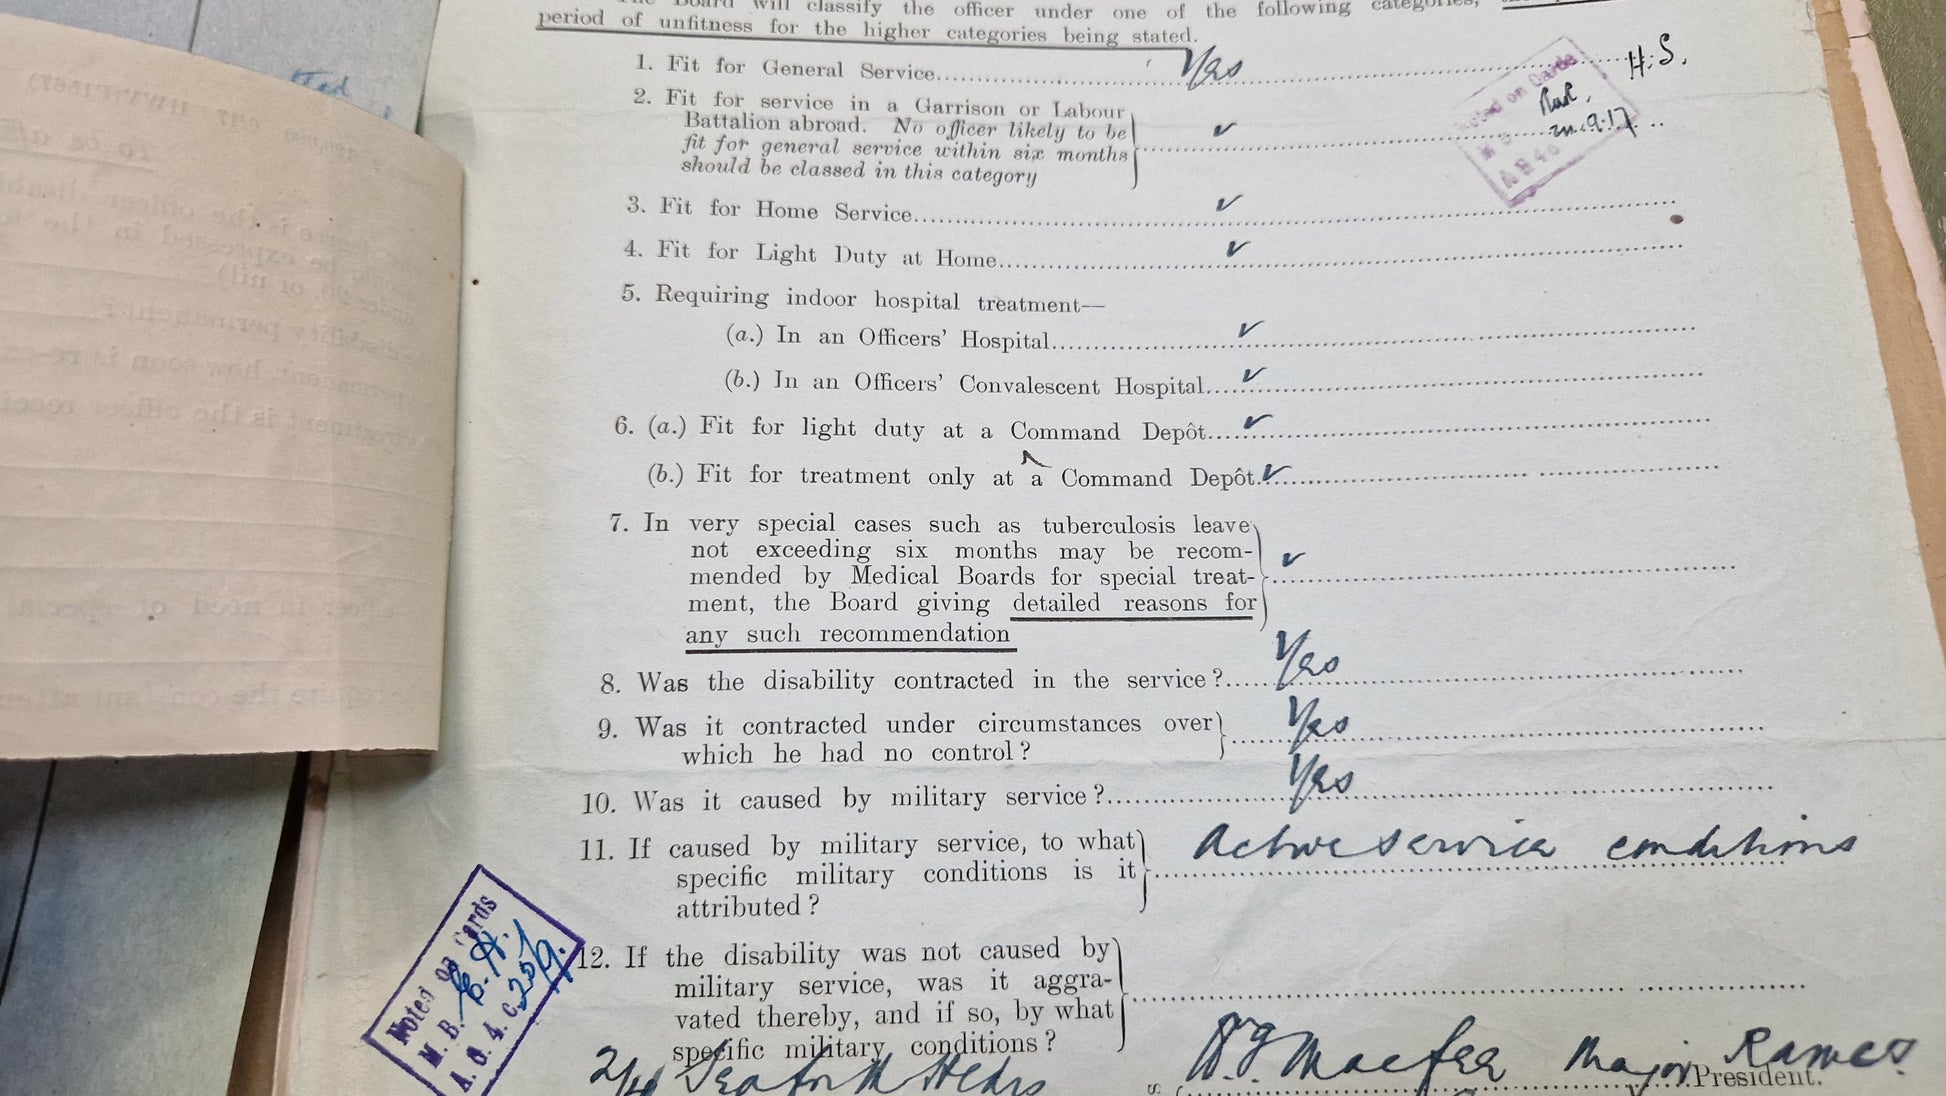 The Board will classify the officer under one of the following categories,
period of unfitness for the higher categories being stated.
1. Fit for General Service.......... Yes
H.S.
2. Fit for service in a Garrison or Labour
Battalion abroad. No officer likely to be ✓
fit for general service within six months
should be classed in this category
Noted on Cards
3. Fit for Home Service.......... ✓
4. Fit for Light Duty at Home.......... ✓
5. Requiring indoor hospital treatment—
(a.) In an Officers' Hospital.......... ✓
(b.) In an Officers' Convalescent Hospital.......... ✓
6. (a.) Fit for light duty at a Command Depôt.......... ✓
(b.) Fit for treatment only at a Command Depôt.......... ✓
7. In very special cases such as tuberculosis leave
not exceeding six months may be recom-
mended by Medical Boards for special treat- ✓
ment, the Board giving detailed reasons for
any such recommendation
8. Was the disability contracted in the service?..... Yes
9. Was it contracted under circumstances over
which he had no control? Yes
10. Was it caused by military service?.......... Yes
11. If caused by military service, to what Active service conditions
specific military conditions is it
attributed?
12. If the disability was not caused by
military service, was it aggra-
vated thereby, and if so, by what
specific military conditions?
Noted on Cards
M. B.
A. G. 4. c.
2/4 Seaforth Hdrs
Macfee Major RAMC
President.